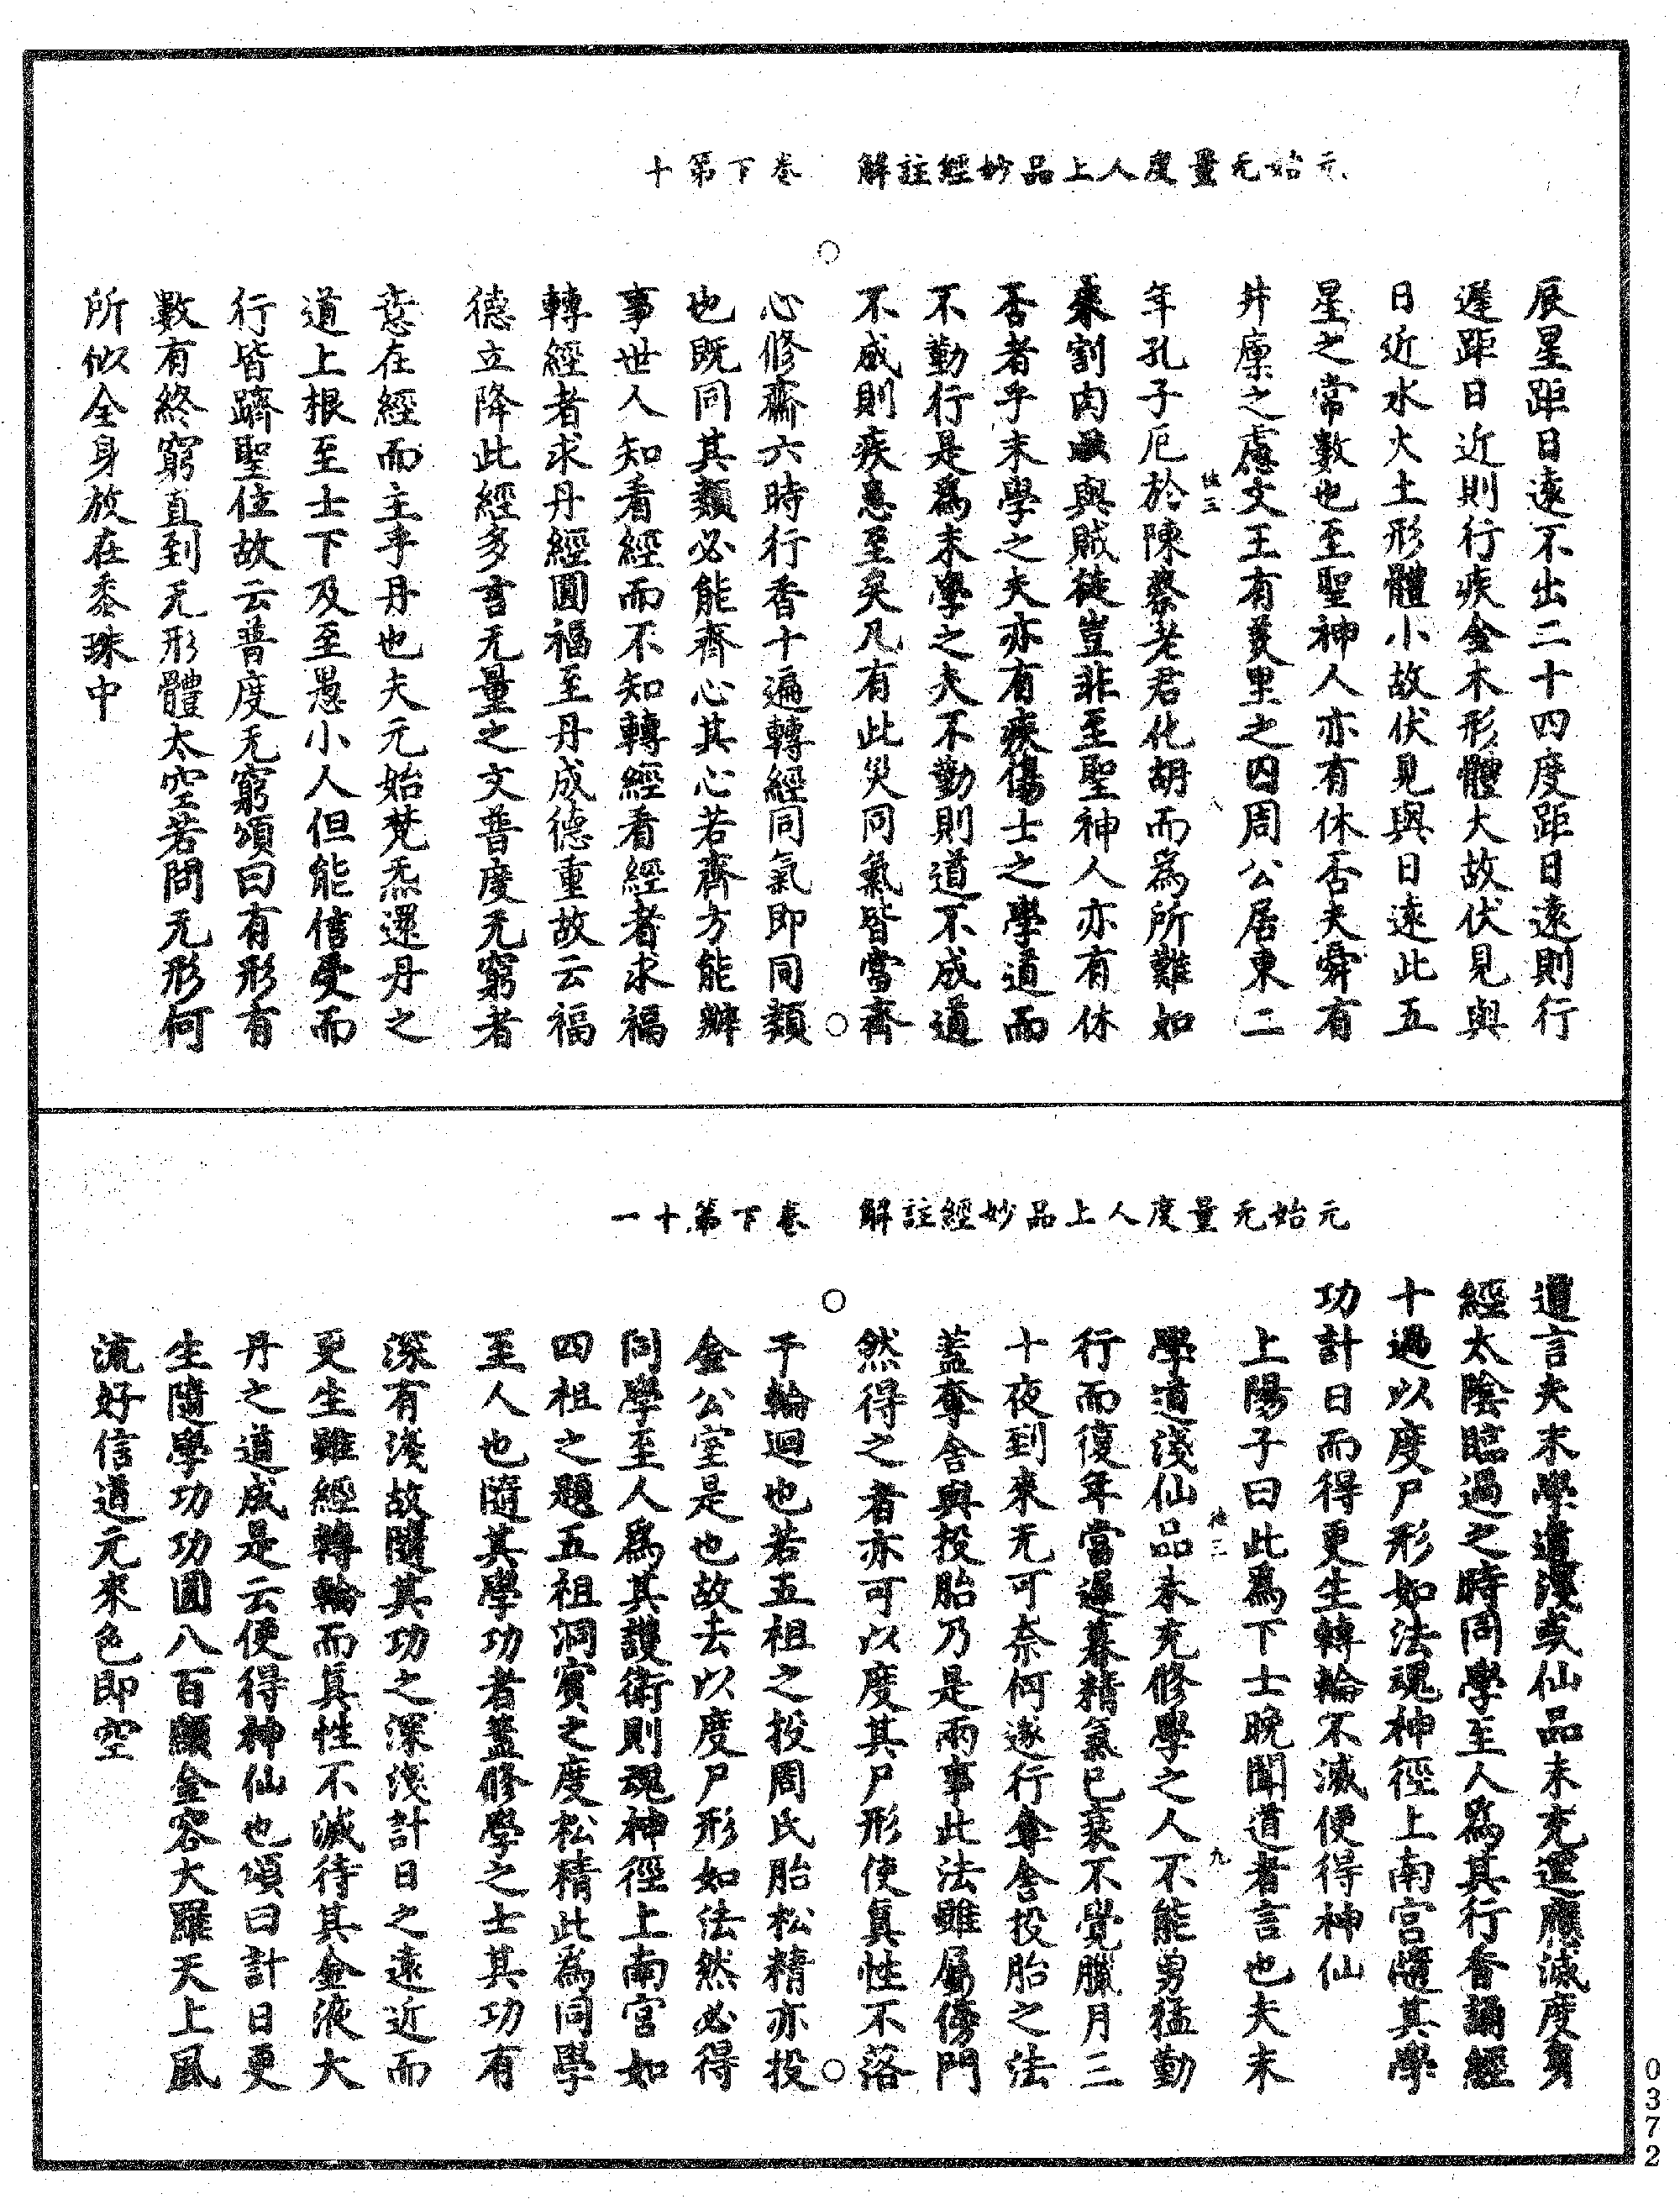 元始无量度人上品妙經註解　卷下第十
辰星距日遠不出二十四度距日遠則行
遲距日近則行疾金木形體大故伏見與
日近水火土形體小故伏見與日遠此五
星之常數也至聖神人亦有休否夫舜有
井廩之慮文王有羑里之囚周公居東二
年孔子厄於陳蔡老君化胡而為所難如
來割肉與賊徒豈非至聖神人亦有休
否者乎末學之夫亦有疾傷士之學道而
不勤行是為末學之夫不勤則道不成道
不成則疾患至矣凡有此災同氣皆當齊
心修齋六時行香十遍轉經同氣即同類
也既同其類必能齊心其心若齊方能辦
事世人知看經而不知轉經看經者求福
轉經者求丹經圓福至丹成德重故云福
德立降此經多言无量之文普度无窮者
意在經而主乎丹也夫元始梵炁還丹之
道上根至士下及至愚小人但能信受而
行皆躋聖位故云普度无窮頌曰有形有
數有終窮直到无形體太空若問无形何
所似全身放在黍珠中
三
八
元始无量度人上品妙經註解　卷下第十一
道言夫末學道淺或仙品未充運應滅度身
經太陰臨過之時同學至人為其行香誦經
十過以度尸形如法魂神徑上南宮隨其學
功計日而得更生轉輪不滅便得神仙
上陽子曰此為下士晚聞道者言也夫末
學道淺仙品未充修學之人不能勇猛勤
行而復年當遲暮精氣已衰不覺臘月三
十夜到來无可奈何遂行奪舍投胎之法
蓋奪舍與投胎乃是兩事此法雖屬傍門
然得之者亦可以度其尸形使真性不落
于輪迴也若五祖之投周氏胎松精亦投
金公室是也故去以度尸形如法然必得
同學至人為其護衛則魂神徑上南宮如
四祖之題五祖洞賓之度松精此為同學
至人也隨其學功者蓋修學之士其功有
深有淺故隨其功之深淺計日之遠近而
更生雖經轉輪而真性不滅待其金液大
丹之道成是云便得神仙也頌曰計日更
生隨學功功圓八百顯金容大羅天上風
流好信道元來色即空
三
九
0372